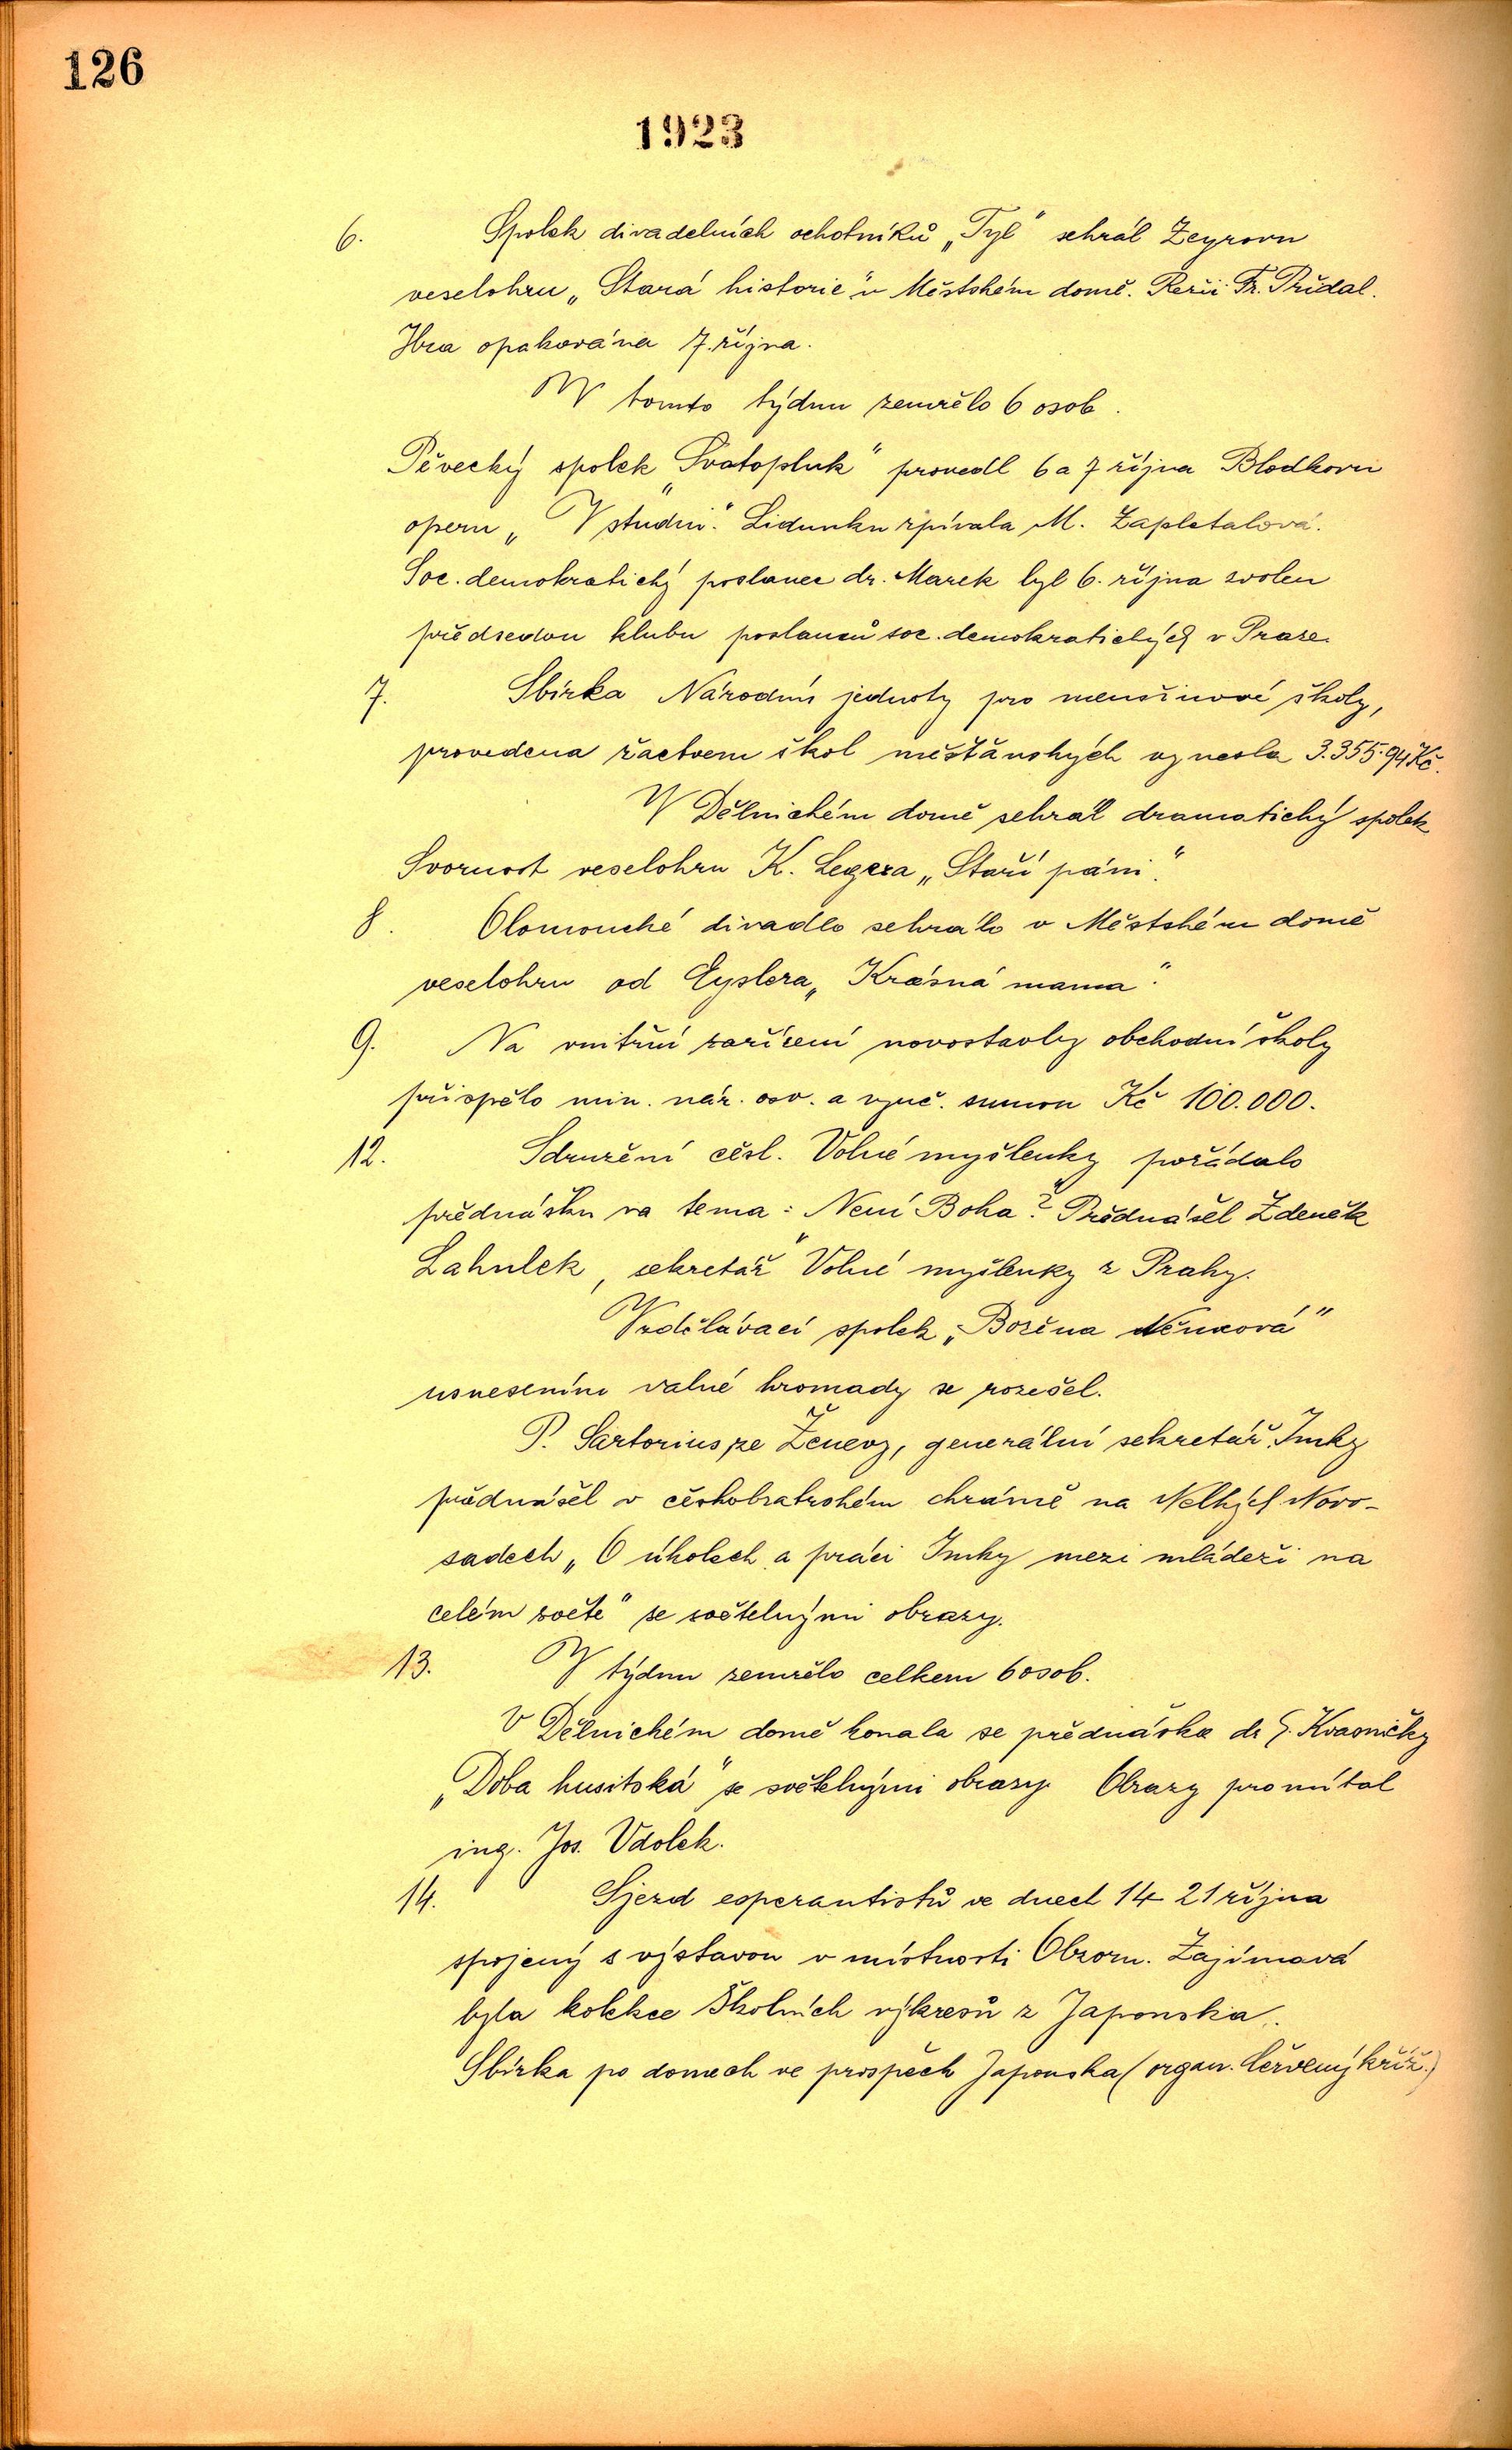 126
1923
6. Spolek divadelních ochotníků „Tyl" sehrál Zeyrovu
veselohru „Stará historie" v Městském domě. Režii Fr. Přidal.
Hra opakována 7. října.
V tomto týdnu zemřelo 6 osob.
Pěvecký spolek „Svatopluk" provedl 6 a 7 října Blodkovu
operu „V studni". Lidunku zpívala M. Zapletalová.
Soc. demokratický poslanec dr. Marek byl 6. října zvolen
předsedou klubu poslanců soc. demokratických v Praze.
7. Sbírka Národní jednoty pro menšinové školy,
provedena žactvem škol měšťanských vynesla 3.355.94 Kč.
V Dělnickém domě sehrál dramatický spolek
Svornost veselohru K. Legera „Staří páni".
8. Olomoucké divadlo sehrálo v Městském domě
veselohru od Eyslera „Krásná mama".
9. Na vnitřní zařízení novostavby obchodní školy
přispělo min. nár. osv. a vyuč. sumou Kč 100.000.
12. Sdružení čěsl. Volné myšlenky pořádalo
přednášku na tema: Není Boha? Přednášel Zdeněk
Lahulek, sekretář Volné myšlenky z Prahy.
Vzdělávací spolek „Božena Němcová"
usnesením valné hromady se rozešel.
P. Sartorius ze Ženevy, generální sekretář Imky
přednášel v českobratrském chrámě na Velkých Novo-
sadech „O úkolech a práci Imky mezi mládeži na
celém světě" se světelnými obrazy.
13. V týdnu zemřelo celkem 6 osob.
V Dělnickém domě konala se přednáška dr G. Kvasničky
„Doba husitská" se světelnými obrazy. Obrazy promítal
ing. Jos. Vdolek.
14. Sjezd esperantistů ve dnech 14 21 října
spojený s výstavou v místnosti Obzoru. Zajímavá
byla kolekce školních výkresů z Japonska.
Sbírka po domech ve prospěch Japonska (organ. Červený kříž.)